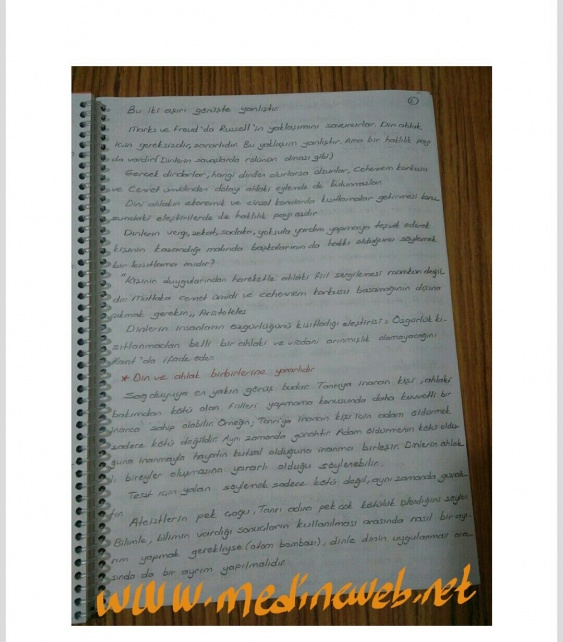 Bu iki aşırı görüşte yanlıştır.
Marks ve Freud'da Russell'in yaklaşımını savunurlar. Din ahlak
için gereksizdir, zararlıdır. Bu yaklaşım yanlıştır. Ama bir haklılık payı
da vardır (Dinlerin savaşlarda rolünün olması gibi)
Gerçek dindarlar, hangi dinden olurlarsa olsunlar, cehennem korkusu
ve Cennet ümidinden dolayı ahlaki eylemde de bulunmazlar.
Dini ahlakın ekonomik ve cinsel konularda kısıtlamalar getirmesi konu
sundaki eleştirilerde de haklılık payı azdır.
Dinlerin vergi, zekat, sadaka, yoksula yardım yapmaya teşvik ederek
kişinin kazandığı malında başkalarının da hakkı olduğunu söylemek
bir kısıtlama mıdır?
"Kişinin duygularından hareketle ahlâki fiil sergilemesi mümkün değil
dir. Mutlaka cennet ümidi ve cehennem korkusu basamağının dışına
çıkmak gerekir,, Aristoteles
Dinlerin insanların özgürlüğünü kısıtladığı eleştirisi = Özgürlük kı
sıtlanmadan belli bir ahlaki ve vicdani arınmışlık olamayacağını
Kant'da ifade eder.
* Din ve ahlak birbirlerine yararlıdır
Sağduyuya en yakın görüş budur. Tanrıya inanan kişi, ahlaki
bakımdan kötü olan fiilleri yapmama konusunda daha kuvvetli bir
inanca sahip olabilir. Örneğin; Tanrı'ya inanan kişi için adam öldürmek
sadece kötü değildir. Aynı zamanda günahtır. Adam öldürmenin kötü oldu-
ğuna inanmayla hayatın kutsal olduğuna inanma birleşir. Dinlerin ahlak
lı bireyler oluşmasına yararlı olduğu söylenebilir.
Teist için yalan söylemek sadece kötü değil, aynı zamanda günah-
tır.
Ateistlerin pek çoğu, Tanrı adına pek çok kötülük işlendiğini söyler.
Bilimle, bilimin vardığı sonuçların kullanılması arasında nasıl bir ay-
rım yapmak gerekliyse (atom bombası), dinle dinin uygulanması ara-
sında da bir ayrım yapılmalıdır.
www.medineweb.net